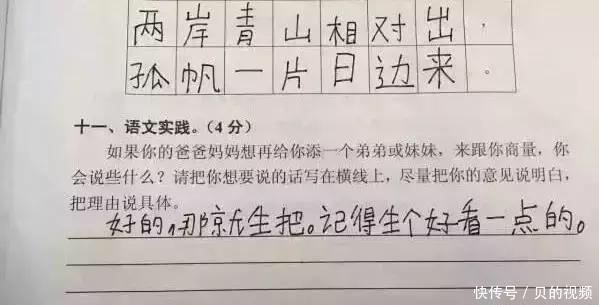 两岸青山相对出，
孤帆一片日边来。
十一、语文实践。（4分）
如果你的爸爸妈妈想再给你添一个弟弟或妹妹，来跟你商量，你
会说些什么？请把你想要说的话写在横线上，尽量把你的意见说明白，
把理由说具体。
好的，那就生把。记得生个好看一点的。
快传号／贝的视频